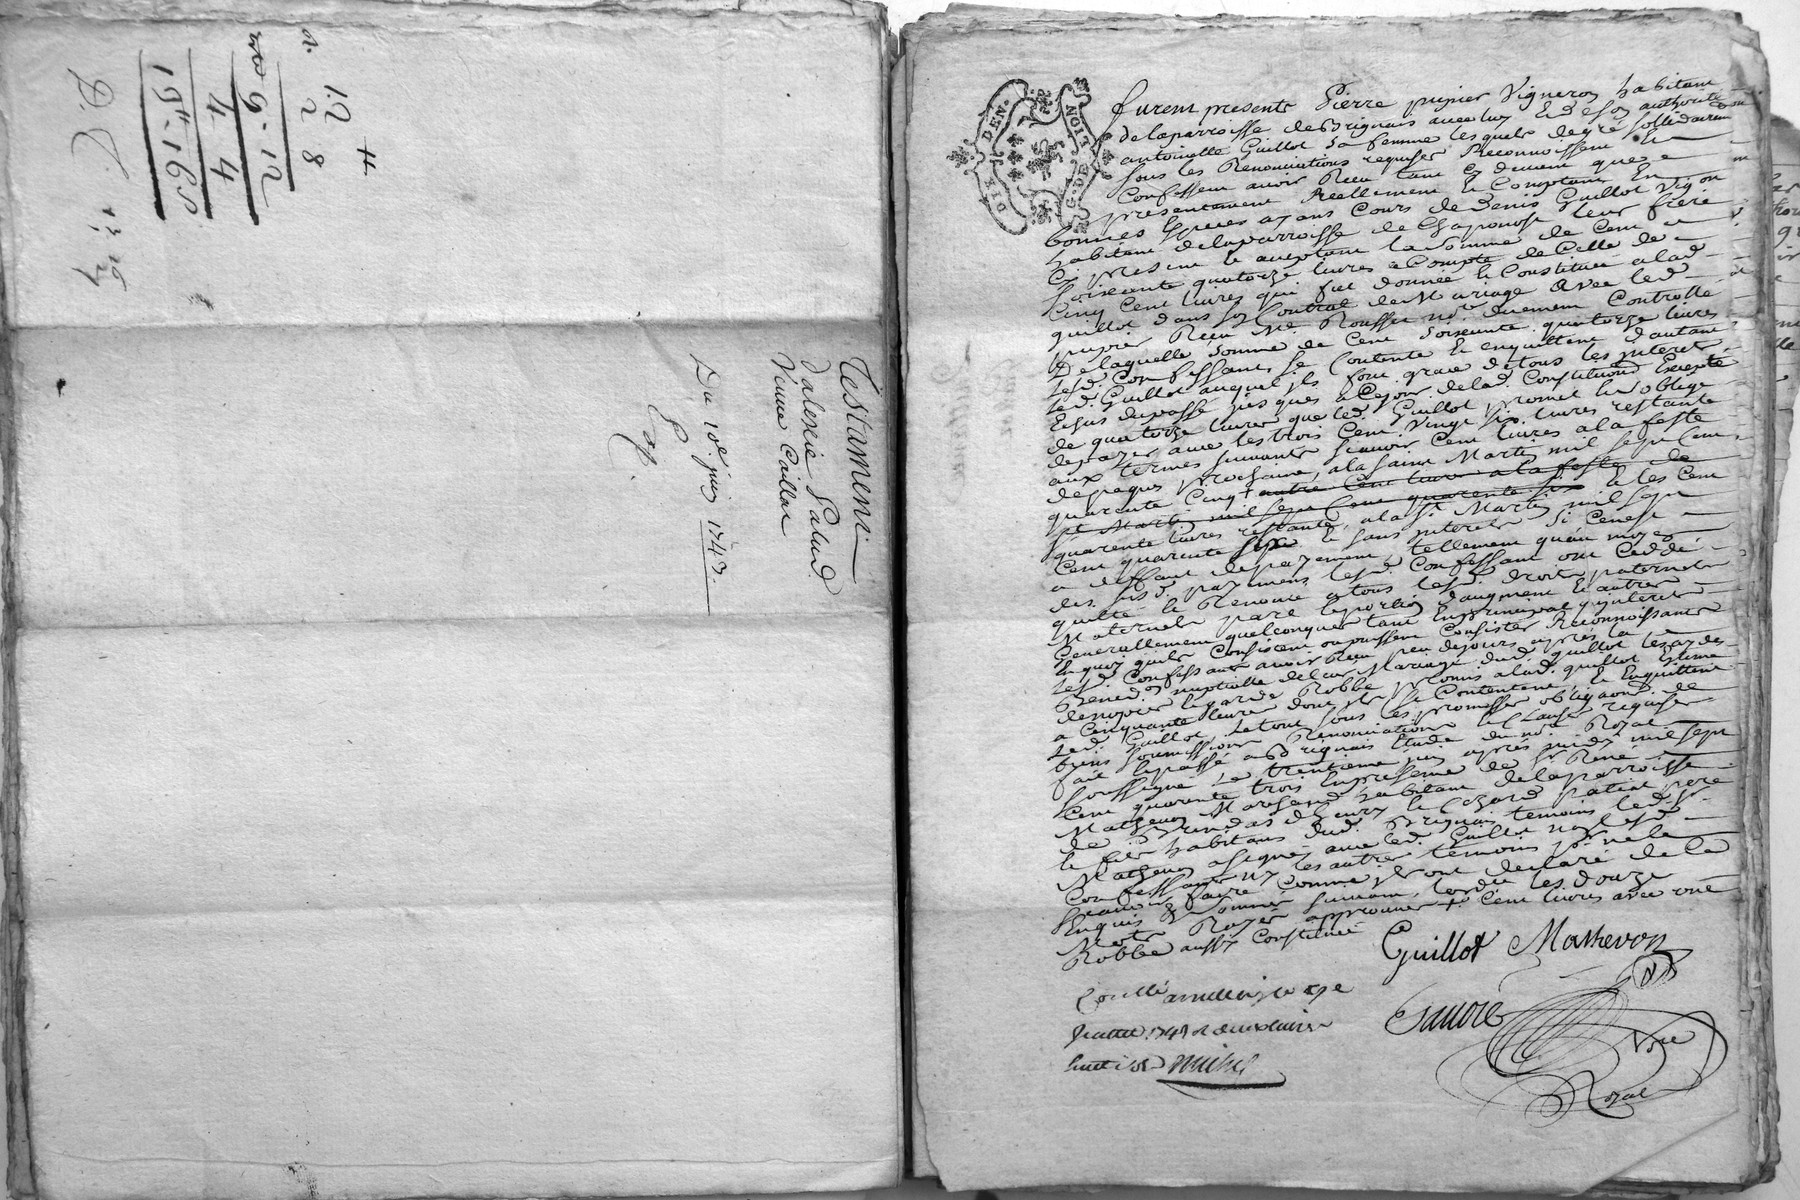 12 #
2 8
9 - 12
4
4 4
19 # - 16 s
Testament
dalexie Palud
Veuve Caillat
Du 10e. juin 1743
DEN
G. DE LION
furent presents Pierre pupier Vigneron habitant
delaparroisse de Brignais avec luy Et de son authorité
antoinette Guillot sa femme lesquels degré sollidairem
sous les Renonciations requises Reconnoissent Et
Confessent avoir Reçu tant cy devant que
presentement Reellement Et Comptant En
bonnes Especes ayans Cours de Denis Guillot Vigon
habitant delaparroisse de Chaponost leur frere
Cy present Et aceptant la somme de Cent
soixante quatorze livres a Compte de Celle de
Cinq Cent livres qui fut donnée Et Constituée alad
guillot dans son Contrat de Mariage Avec led
pupier Reçu Me Rousset nore duement Controllé
De laquelle somme de Cent soixante quatorze livres
lesd. Confessants se Contente Et enquittent dautant
led. Guillot auquel ils font grace de tous les interets
Echus du passé jusques a Cejour delad. Constitution Excepté
de quatorze livres que led. Guillot promet Et oblige
depayer avec les trois Cent Vingt six livres restante
aux termes suivants scavoir Cent livres a la feste
depaques prochaine, ala saint Martin mil sept Cent
quarante Cinq + autre Cent livres a la feste de
st Martin mil sept Cent quarante six Et les Cent
quarente livres restante, ala st Martin mil sept
Cent quarente sept Et sans interets Si Cenest
a deffaut depayement, tellement quau moyen
des susd. payemens lesd. Confessant ont Ceddé
quitté Et Renoncé atous lesd. droits paternels
Maternels part Et portion daugment Et autres
Generallement quelconques tant En principal quinterets
En quoy quils Consistent ou puissent Consister Reconnoissants
lesd. Confessants avoir Reçu peu dejours après la
Bened.on nuptialle deleur Mariage dud. guillot les aydes
denopces Et garde Robbe promis alad. guillot Estimé
a Cinquante livres dont ils se Contentent, Et Enquittent
led. Guillot, letout sous les promesses obligaons. de
biens soumissions Renonciations Et Clauses requises
fait Et passé a Brignais Etude du no. Royal
soussigné Le trentieme juin après midy mil sept
Cent quarente trois En presence de Sr René
Mathevon Marchand habitant delaparroisse
de Brindas dhenry Et Chard Patiat pere
Et fils habitans dud. Brignais temoins led. Sr
Mathevon asigné avec led. Guillot non lesd
Confessants ny les autres temoins pour ne le
scavoir faire Comme ils ont declaré de Ce
Enquis Et sommés suivant lordce les douze
Mots Rayés approuvés + Cent livres avec une
Robbe aussy Constituée
Guillot Mathevon
Fauvre
Nore
Royal
Controllé
Juillet 1743
Michel